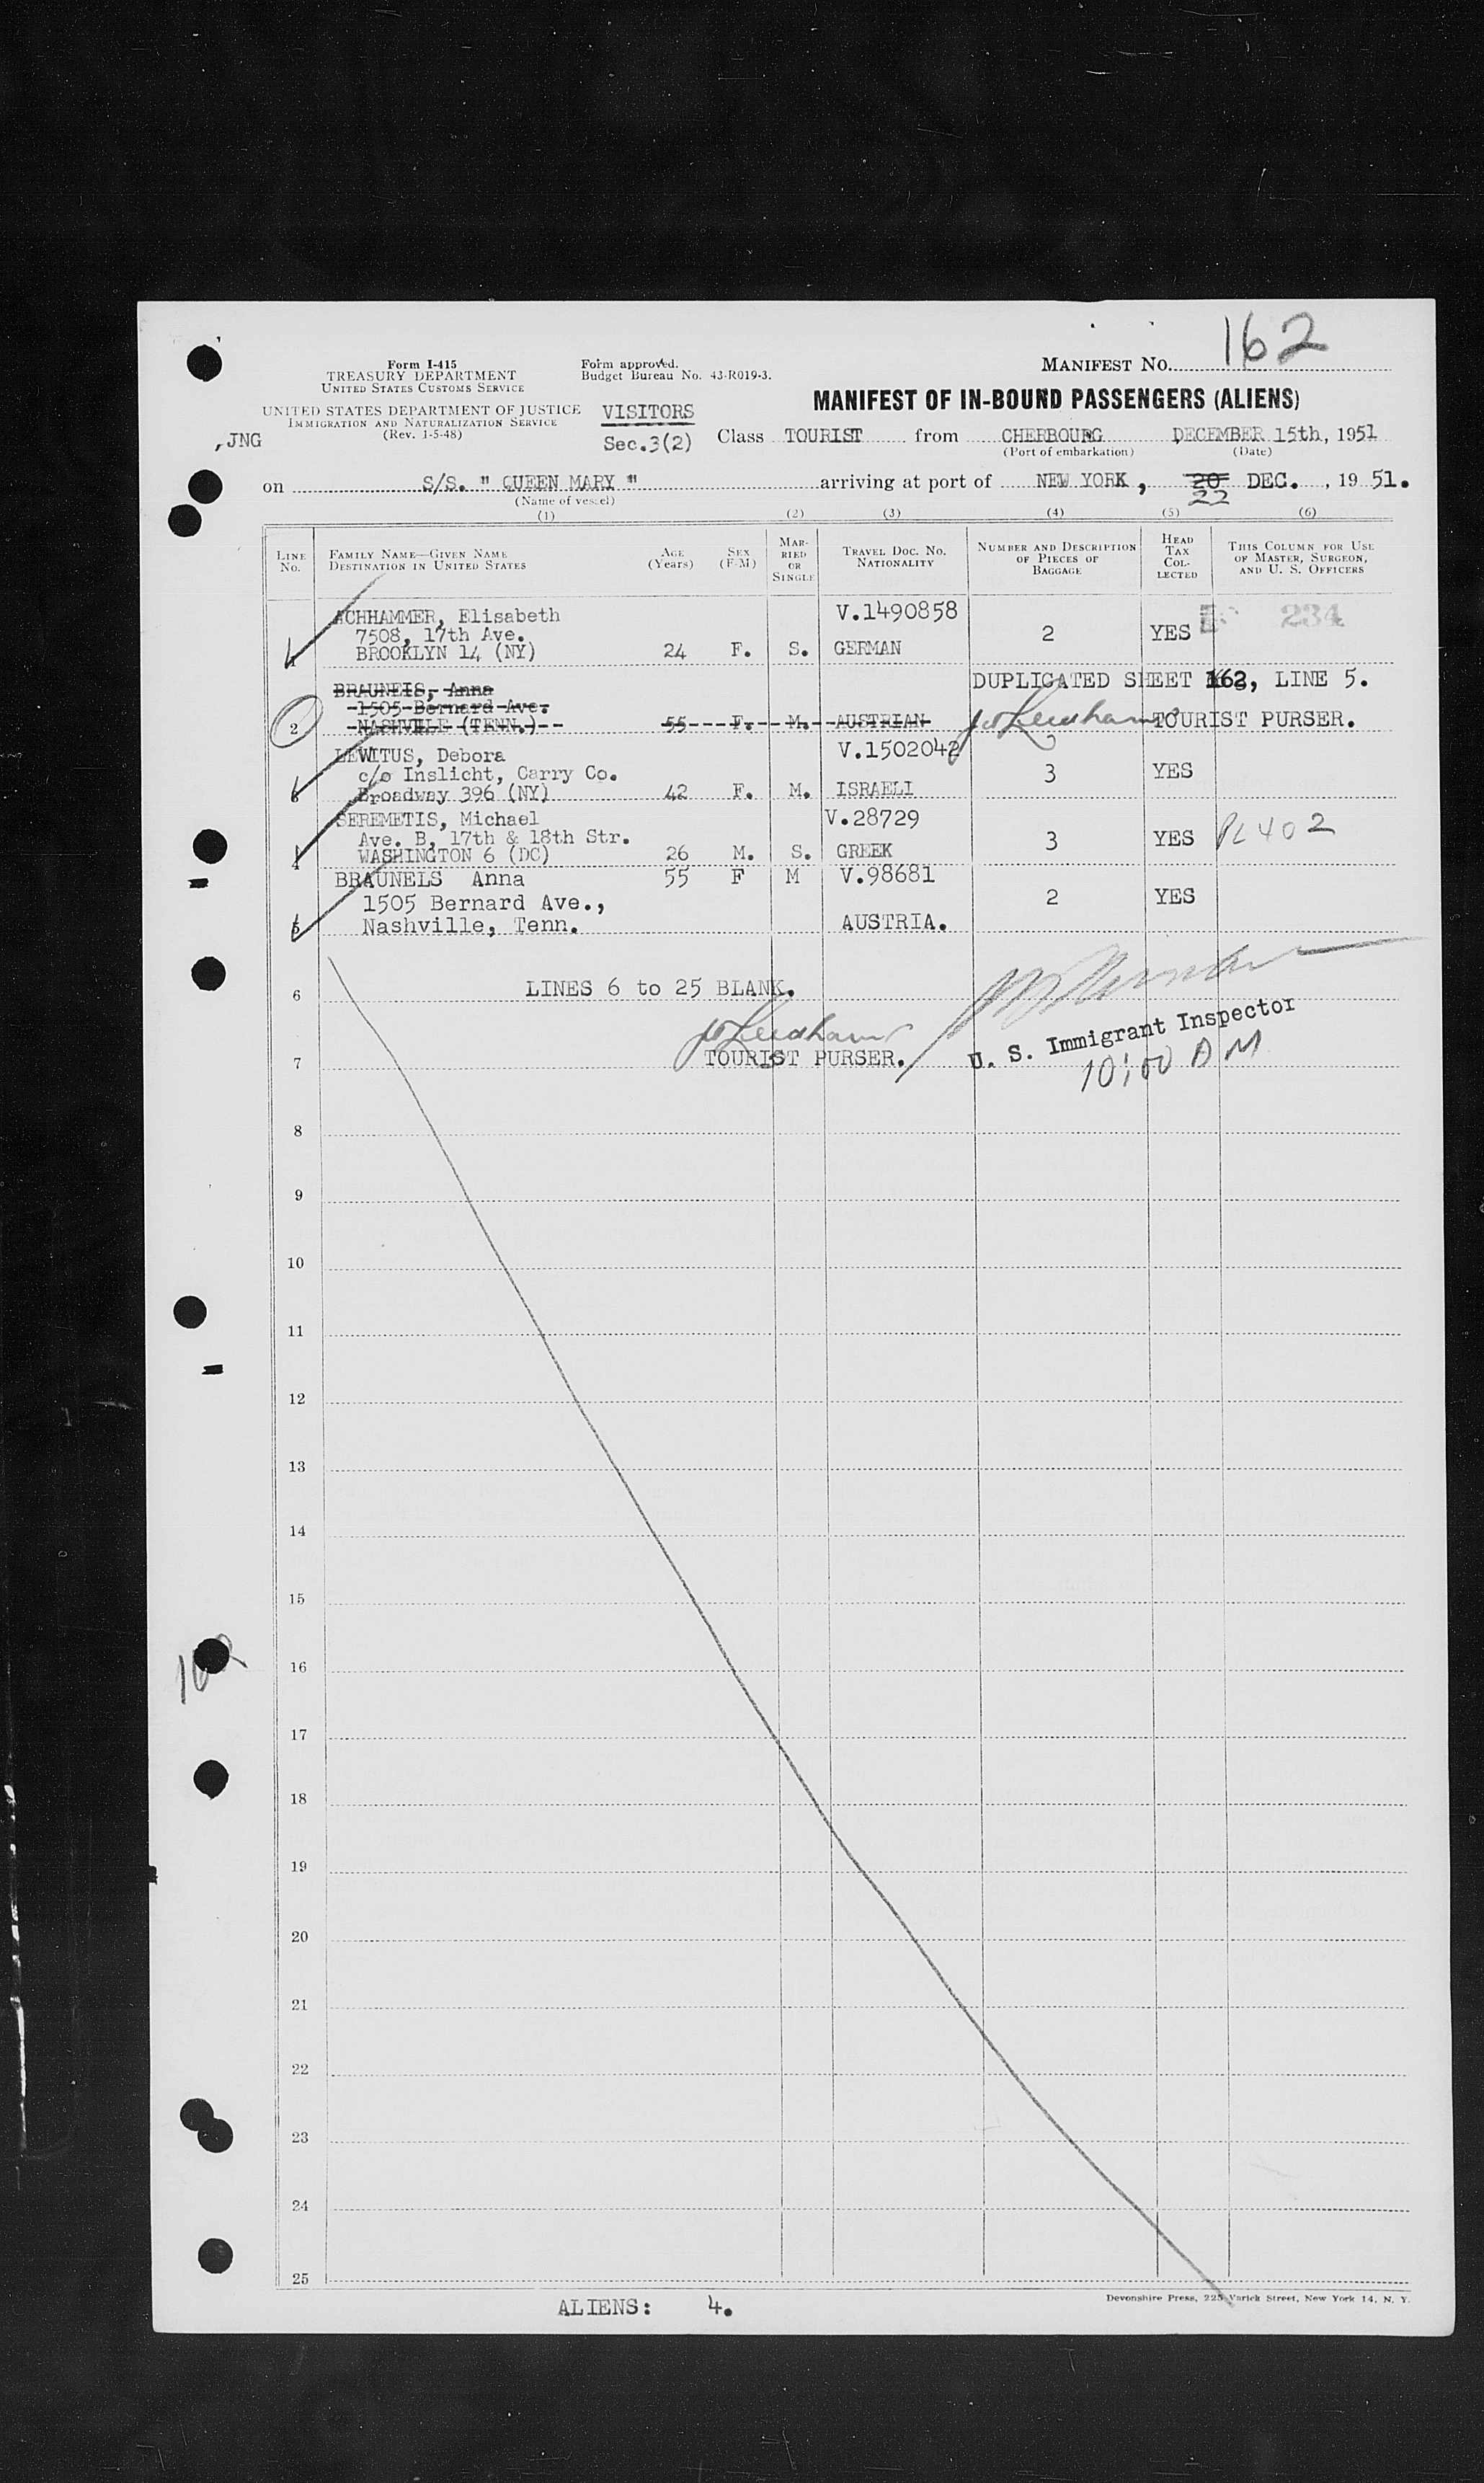 162
Form I-415
TREASURY DEPARTMENT
UNITED STATES CUSTOMS SERVICE
Form approved.
Budget Bureau No. 43-R019-3.
MANIFEST NO.
UNITED STATES DEPARTMENT OF JUSTICE
IMMIGRATION AND NATURALIZATION SERVICE
(Rev. 1-5-48)
VISITORS
Sec.3(2)
MANIFEST OF IN-BOUND PASSENGERS (ALIENS)
,JNG
Class TOURIST from CHERBOURG DECEMBER 15th, 1951
(Port of embarkation) (Date)
on S/S. " QUEEN MARY " arriving at port of NEW YORK, 20 DEC. , 19 51.
22
(Name of vessel)
(1) (2) (3) (4) (5) (6)
LINE NO.
FAMILY NAME—GIVEN NAME
DESTINATION IN UNITED STATES
AGE (Years)
SEX (F-M)
MARRIED OR SINGLE
TRAVEL DOC. NO. NATIONALITY
NUMBER AND DESCRIPTION OF PIECES OF BAGGAGE
HEAD TAX COLLECTED
THIS COLUMN FOR USE OF MASTER, SURGEON, AND U. S. OFFICERS
ACHHAMMER, Elisabeth V.1490858
7508, 17th Ave. 2 YES 234
1 BROOKLYN 14 (NY) 24 F. S. GERMAN
BRAUNEIS, Anna DUPLICATED SHEET 162, LINE 5.
1505 Bernard Ave.
2 NASHVILLE (TENN.) 55 F. M. AUSTRIAN TOURIST PURSER.
LEWITUS, Debora V.1502042
c/o Inslicht, Carry Co. 3 YES
3 Broadway 396 (NY) 42 F. M. ISRAELI
SEREMETIS, Michael V.28729
Ave. B, 17th & 18th Str. 3 YES PL402
4 WASHINGTON 6 (DC) 26 M. S. GREEK
BRAUNELS Anna 55 F M V.98681
1505 Bernard Ave., 2 YES
5 Nashville, Tenn. AUSTRIA.
6 LINES 6 to 25 BLANK.
U. S. Immigrant Inspector
7 TOURIST PURSER.
10:00 AM
8
9
10
11
12
13
14
15
16
162
17
18
19
20
21
22
23
24
25
ALIENS: 4.
Devonshire Press, 225 Varick Street, New York 14, N. Y.